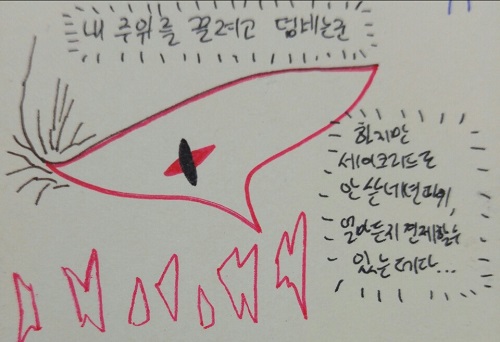 내 주위를 끌려고 덤비는군
하지만
세이크리드로
안 살 네년따위,
얼마든지 견제할 수
있는 데다...